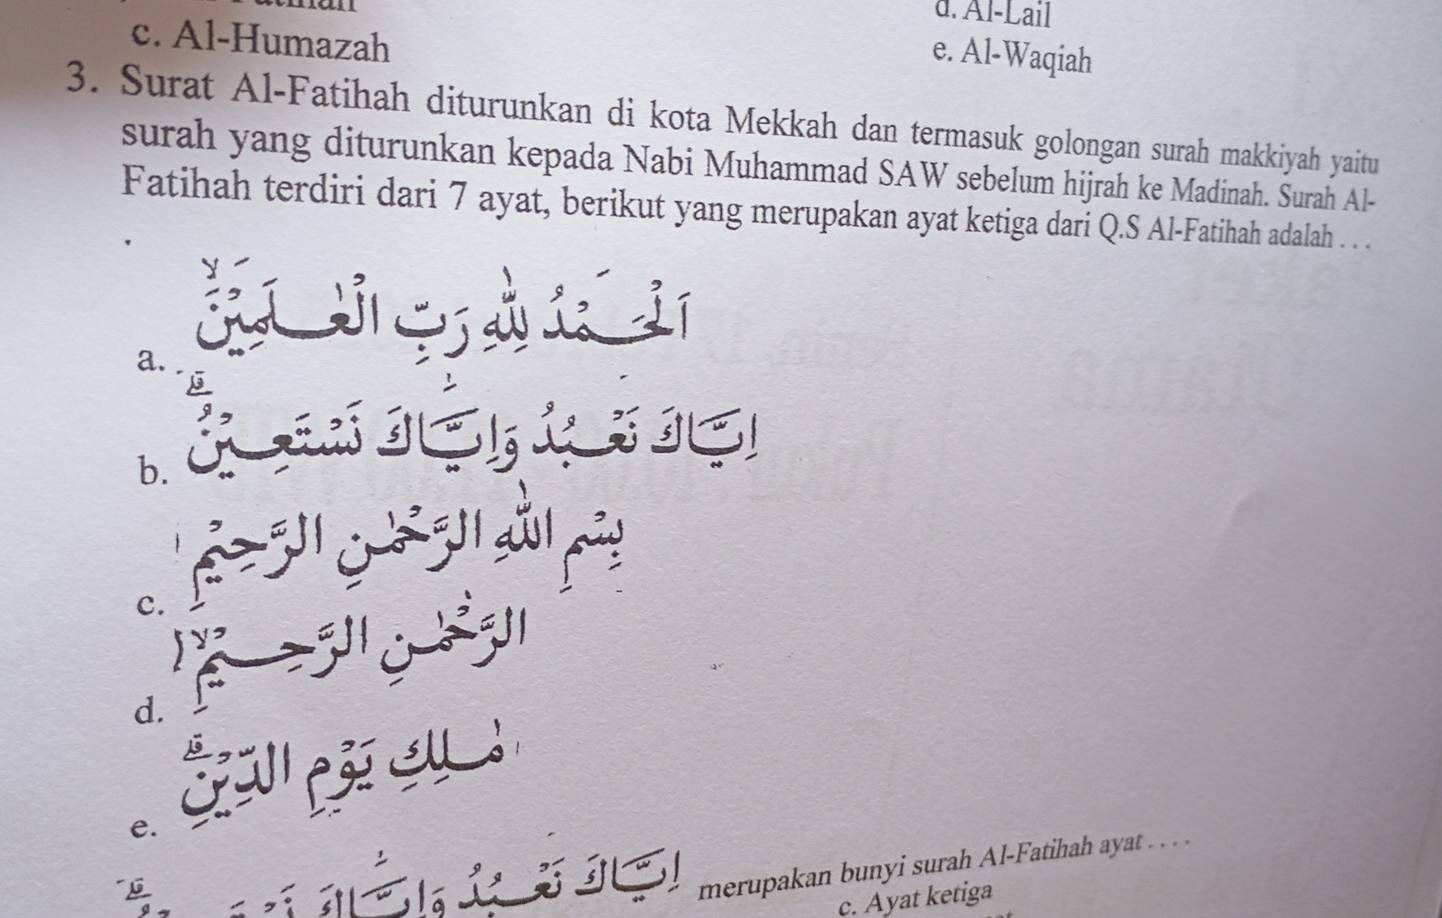 c. Al-Humazah
d. Al-Lail
e. Al-Waqiah
3. Surat Al-Fatihah diturunkan di kota Mekkah dan termasuk golongan surah makkiyah yaitu
surah yang diturunkan kepada Nabi Muhammad SAW sebelum hijrah ke Madinah. Surah Al-
Fatihah terdiri dari 7 ayat, berikut yang merupakan ayat ketiga dari Q.S Al-Fatihah adalah . . .
a. اَلْحَمْدُ لِلّٰهِ رَبِّ الْعٰلَمِيْنَۙ
b. اِيَّاكَ نَعْبُدُ وَاِيَّاكَ نَسْتَعِيْنُۗ
c. بِسْمِ اللّٰهِ الرَّحْمٰنِ الرَّحِيْمِ
d. الرَّحْمٰنِ الرَّحِيْمِۙ
e. مٰلِكِ يَوْمِ الدِّيْنِۗ
اِيَّاكَ نَعْبُدُ وَاِيَّاكَ merupakan bunyi surah Al-Fatihah ayat . . . .
c. Ayat ketiga